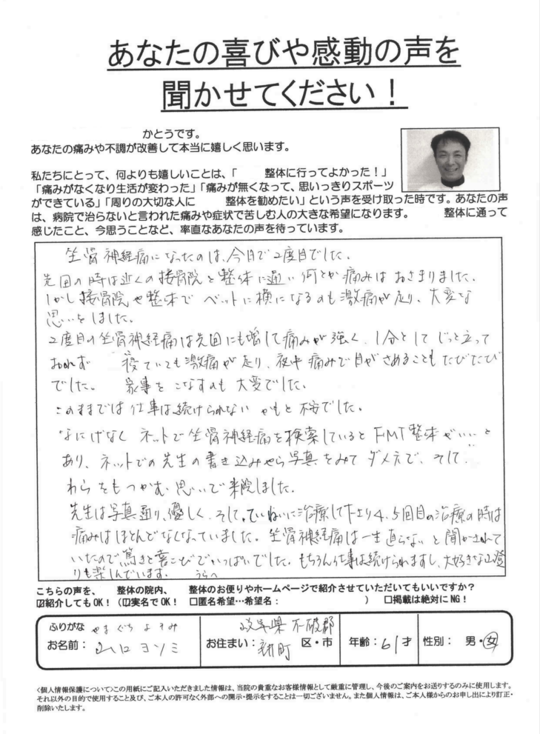 あなたの喜びや感動の声を
聞かせてください！
かとうです。
あなたの痛みや不調が改善して本当に嬉しく思います。
私たちにとって、何よりも嬉しいことは、「 整体に行ってよかった！」
「痛みがなくなり生活が変わった」「痛みが無くなって、思いっきりスポーツ
ができている」「周りの大切な人に 整体を勧めたい」という声を受け取った時です。あなたの声
は、病院で治らないと言われた痛みや症状で苦しむ人の大きな希望になります。 整体に通って
感じたこと、今思うことなど、率直なあなたの声を待っています。
坐骨神経痛になったのは、今日で2度目でした。
先回の時は近くの接骨院と整体に通い何とか痛みはおさまりました。
しかし接骨院や整体でベットに横になるのも激痛が走り、大変な
思いをしました。
2度目の坐骨神経痛は先回にも増して痛みが強く、1分としてじっと立って
おれず 寝ていても激痛が走り、夜中痛みで目がさめることもたびたび
でした。 家事をこなすのも大変でした。
このままでは仕事は続けられないかもと不安でした。
なにげなくネットで坐骨神経痛を検索しているとFMT整体がいいと
あり、ネットでの先生の書き込みやら写真をみてダメ元で、そして
わらをもつかむ思いで来院しました。
先生は写真通り、優しく、そして、ていねいに治療して下さり4、5回目の治療の時は
痛みはほとんどなくなっていました。坐骨神経痛は一生直らないと聞かされて
いたので驚きと喜こびでいっぱいでした。もちろん仕事は続けられますし、大好きな山登
りも楽しんでいます。 うらへ
こちらの声を、 整体の院内、 整体のお便りやホームページで紹介させていただいてもいいですか？
☑紹介してもOK！（☑実名でOK！ □匿名希望…希望名： ） □掲載は絶対にNG！
ふりがな やまぐち よそみ
お名前： 山口 ヨソミ
岐阜県 不破郡
お住まい： 町 区・市
年齢： 61才
性別： 男・女
〈個人情報保護について〉この用紙にご記入いただきました情報は、当院の貴重なお客様情報として厳重に管理し、今後のご案内をお送りするのみに使用します。
それ以外の目的で使用すること及び、ご本人の許可なく外部への開示・提示をすることは一切ございません。また個人情報は、ご本人様からのお申し出により訂正・
削除いたします。